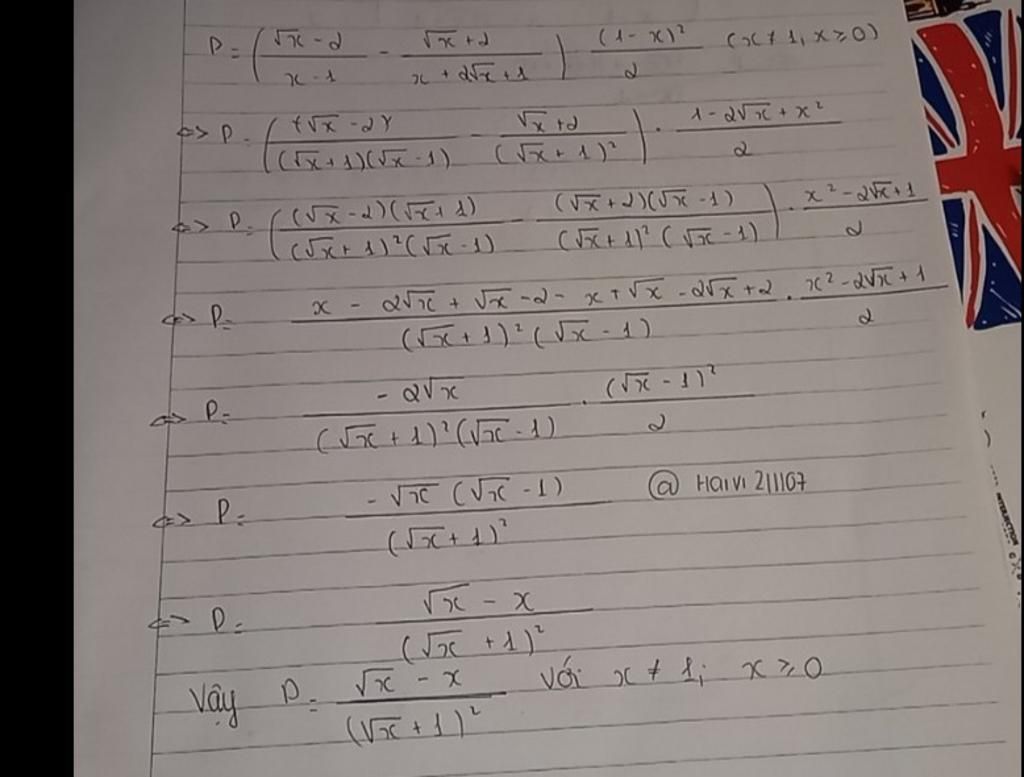 P = ( (√x - 2)/(x - 1) - (√x + 2)/(x + 2√x + 1) ) (1 - x)²/2 (x ≠ 1, x ≥ 0)
<=> P = ( (√x - 2)/((√x + 1)(√x - 1)) - (√x + 2)/(√x + 1)² ) . (1 - 2√x + x²)/2
<=> P = ( ((√x - 2)(√x + 1))/((√x + 1)²(√x - 1)) - ((√x + 2)(√x - 1))/((√x + 1)²(√x - 1)) ) . (x² - 2√x + 1)/2
<=> P = (x - 2√x + √x - 2 - x + √x - 2√x + 2)/((√x + 1)²(√x - 1)) . (x² - 2√x + 1)/2
<=> P = (-2√x)/((√x + 1)²(√x - 1)) . (√x - 1)²/2
<=> P = (-√x (√x - 1))/(√x + 1)² @ Haivi 211167
<=> P = (√x - x)/(√x + 1)²
Vậy P = (√x - x)/(√x + 1)² với x ≠ 1; x ≥ 0